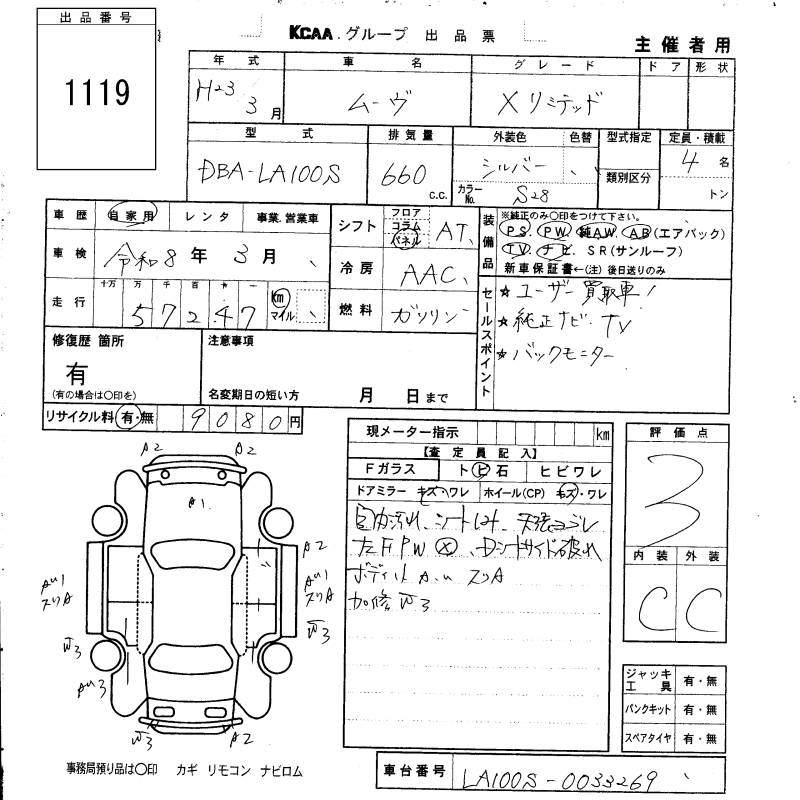 出品番号
1119
KCAA グループ 出品票
主催者用
年式 車名 グレード ドア 形状
H23 3月 ムーヴ Xリミテッド
型式 排気量 外装色 色替 型式指定 定員・積載
DBA-LA100S 660 c.c. シルバー 類別区分 4名
カラーNo. S28 トン
車歴 自家用 レンタ 事業・営業車
シフト フロア コラム パネル AT
装備品 ※純正のみ○印をつけて下さい。
PS PW 純AW AB(エアバック)
TV ナビ SR(サンルーフ)
新車保証書←(注)後日送りのみ
車検 令和8年 3月
冷房 AAC
走行 十万 万 千 百 十 一
57247 km マイル
燃料 ガソリン
セールスポイント
★ユーザー買取車!
★純正ナビ・TV
★バックモニター
修復歴 箇所
有
(有の場合は○印を)
注意事項
名変期日の短い方 月 日まで
リサイクル料 有・無 9080円
現メーター指示 km
【査定員記入】
Fガラス トビ石 ヒビワレ
ドアミラー キズ・ワレ ホイール(CP) キズ・ワレ
室内汚れ、シート 天張ヨゴレ
左F PW ×、Dシートサイド破れ
ボディ スリA
加修 W3
評価点
3
内装 外装
C C
A2 A2
A1
A2
AU1 AU1
スリA スリA
W3 W3
AU3
W3 A2
ジャッキ工具 有・無
パンクキット 有・無
スペアタイヤ 有・無
事務局預り品は○印 カギ リモコン ナビロム
車台番号 LA100S-0033269